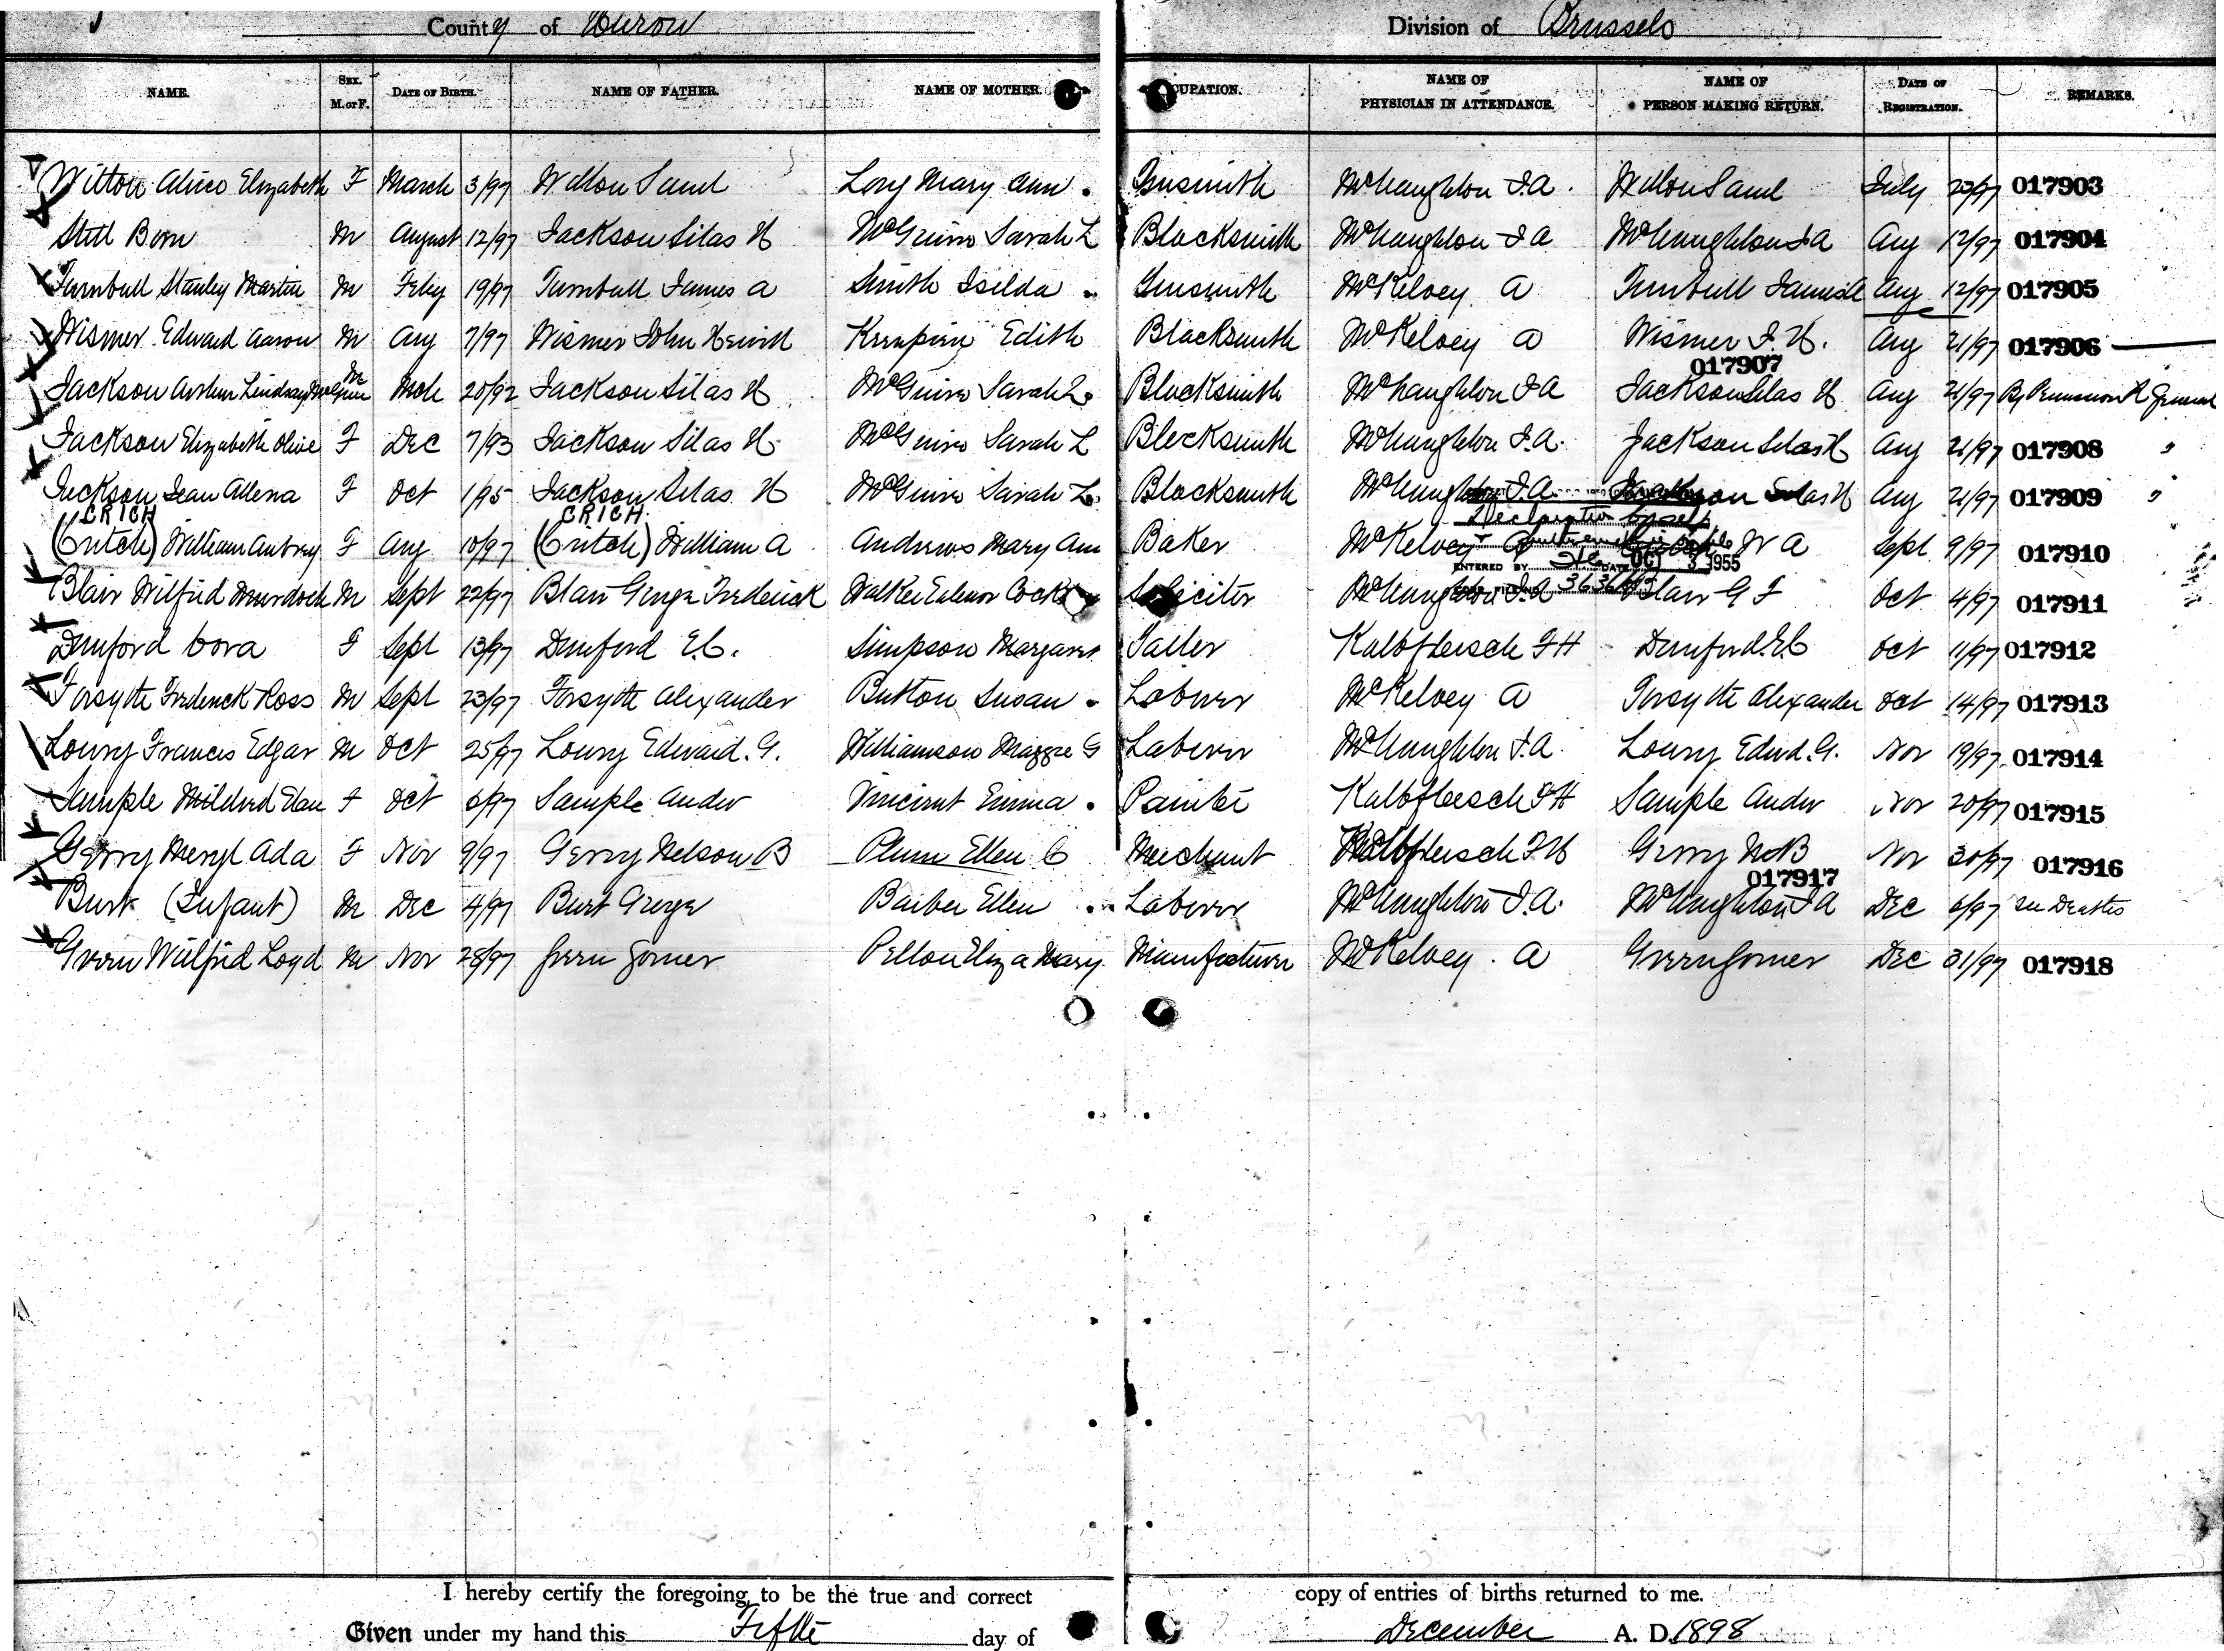 County of Huron Division of Brussels
NAME. SEX. M. or F. DATE OF BIRTH. NAME OF FATHER. NAME OF MOTHER. CUPATION. NAME OF PHYSICIAN IN ATTENDANCE. NAME OF PERSON MAKING RETURN. DATE OF REGISTRATION. REMARKS.
Wilton Alice Elizabeth F March 3/97 Wilton Saml Long Mary Ann Tinsmith McNaughton J.A. Wilton Saml July 23/97 017903
Still Born M August 12/97 Jackson Silas H McGuire Sarah L Blacksmith McNaughton J A McNaughton J A Aug 12/97 017904
Turnbull Stanley Martin M Feby 19/97 Turnbull James A Smith Isilda Tinsmith McKelvey A Turnbull James A Aug 12/97 017905
Wismer Edward Aaron M Aug 7/97 Wismer John Edith Blacksmith McKelvey A Wismer J. H. Aug 21/97 017906
017907
Jackson Arthur Lindsay McGuire M Mch 20/92 Jackson Silas H McGuire Sarah L. Blacksmith McNaughton J A Jackson Silas H Aug 21/97 By Permission R General
Jackson Elizabeth Olive F Dec 7/93 Jackson Silas H McGuire Sarah L Blacksmith McNaughton J.A. Jackson Silas H Aug 21/97 017908 "
Jackson Jean Allena F Oct 1/95 Jackson Silas H McGuire Sarah L. Blacksmith McNaughton J.A. Jackson Silas H Aug 21/97 017909 "
CRICH CRICH Declaration by self
(Critch) William Aubrey F Aug 10/97 (Critch) William A Andrews Mary Ann Baker McKelvey A W A Sept 9/97 017910
ENTERED BY DATE OCT 3 1955
Blair Wilfrid Murdoch M Sept 22/97 Blair George Frederick Walker Solicitor McNaughton J.A. Blair G F Oct 4/97 017911
Dunford Cora F Sept 13/97 Dunford E.C. Simpson Margaret Tailor Kalbfleisch F H Dunford E C Oct 11/97 017912
Forsyth Frederick Ross M Sept 23/97 Forsyth Alexander Button Susan Laborer McKelvey A Forsyth Alexander Oct 14/97 017913
Lowry Francis Edgar M Oct 25/97 Lowry Edward. G. Williamson Maggie G Laborer McNaughton J.A. Lowry Edwd. G. Nov 19/97 017914
Sample Mildred F Oct 6/97 Sample Andw Vincent Emma Painter Kalbfleisch F H Sample Andw Nov 20/97 017915
Gerry Meryl Ada F Nov 9/97 Gerry Nelson B Plum Ellen C Merchant Kalbfleisch F. H Gerry N B Nov 30/97 017916
017917
Burt (Infant) M Dec 4/97 Burt George Barber Ellen Laborer McNaughton J.A. McNaughton J A Dec 6/97 See Deaths
Green Wilfrid Loyd M Nov 28/97 Green Gomer Pelton Eliza Mary Manufacturer McKelvey. A Green Gomer Dec 31/97 017918
I hereby certify the foregoing to be the true and correct copy of entries of births returned to me.
Given under my hand this Fifth day of December A. D. 1898